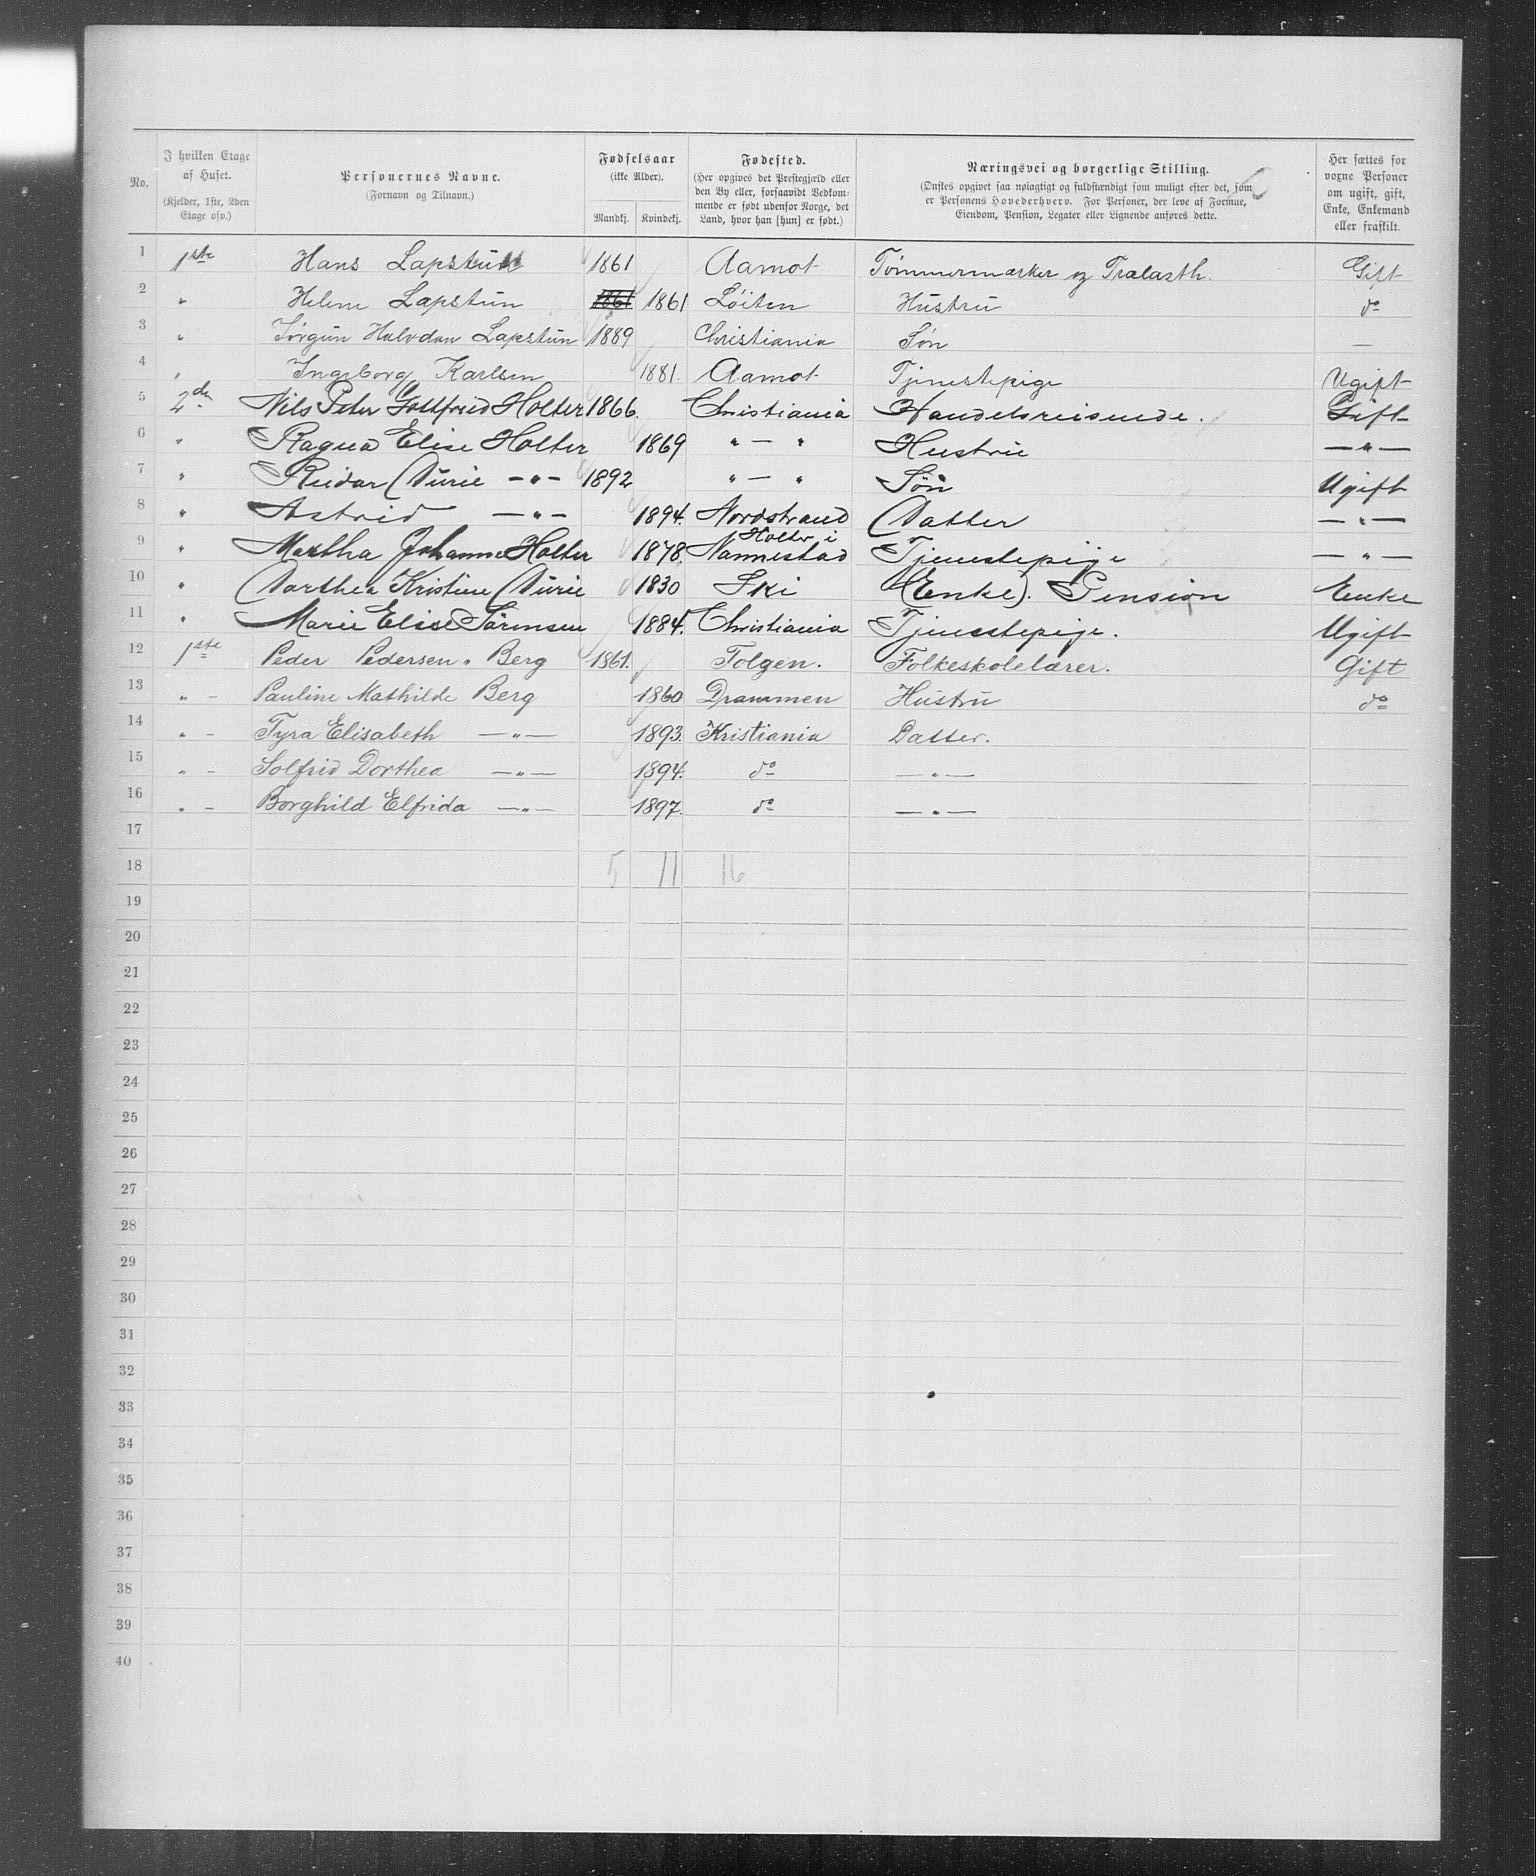 No.
I hvilken Etage af Huset.
(Kjelder, 1ste, 2den Etage osv.)
Personernes Navne.
(Fornavn og Tilnavn.)
Fødselsaar
(ikke Alder).
Mandkj. Kvindekj.
Fødested.
(Her opgives det Prestegjæld eller den By eller, forsaavidt Vedkommende er født udenfor Norge, det Land, hvor han [hun] er født.)
Næringsvei og borgerlige Stilling.
(Ønskes opgivet saa nøiagtigt og fuldstændigt som muligt efter det, som er Personens Hovederhverv. For Personer, der leve af Formue, Eiendom, Pension, Legater eller Lignende anføres dette.
Her sættes for voxne Personer om ugift, gift, Enke, Enkemand eller fraskilt.
1 1ste Hans Lapstun 1861 Aamot Tømmermærker og Tralasth. Gift
2 " Helene Lapstun 1861 1861 Løiten Hustru do
3 " Jørgun Halvdan Lapstun 1889 Christiania Søn —
4 " Ingeborg Karlsen 1881. Aamot Tjenestepige Ugift
5 2den Nils Peter Gottfried Holter 1866. Christiania Handelsreisende. Gift
6 " Ragna Elise Holter 1869 " — " Hustru — " —
7 " Reidar Durie — " — 1892 " — " Søn Ugift
8 " Astrid — " — 1894. Nordstrand Datter — " —
9 " Martha Johanne Holter 1878. Holter i Nannestad Tjenestepige — " —
10 " Dorthea Kristine Durie 1830 Ski (Enke). Pension Enke
11 " Marie Elise Sørensen 1884. Christiania Tjenestepige. Ugift
12 1ste Peder Pedersen Berg 1861. Tolgen. Folkeskolelærer. Gift
13 " — Pauline Mathilde Berg 1860 Drammen Hustru do
14 " — Tyra Elisabeth — " — 1893. Kristiania Datter.
15 " — Solfrid Dorthea — " — 1894. do — " —
16 " — Borghild Elfrida — " — 1897. do — " —
17
18 5 11 16
19
20
21
22
23
24
25
26
27
28
29
30
31
32
33
34
35
36
37
38
39
40